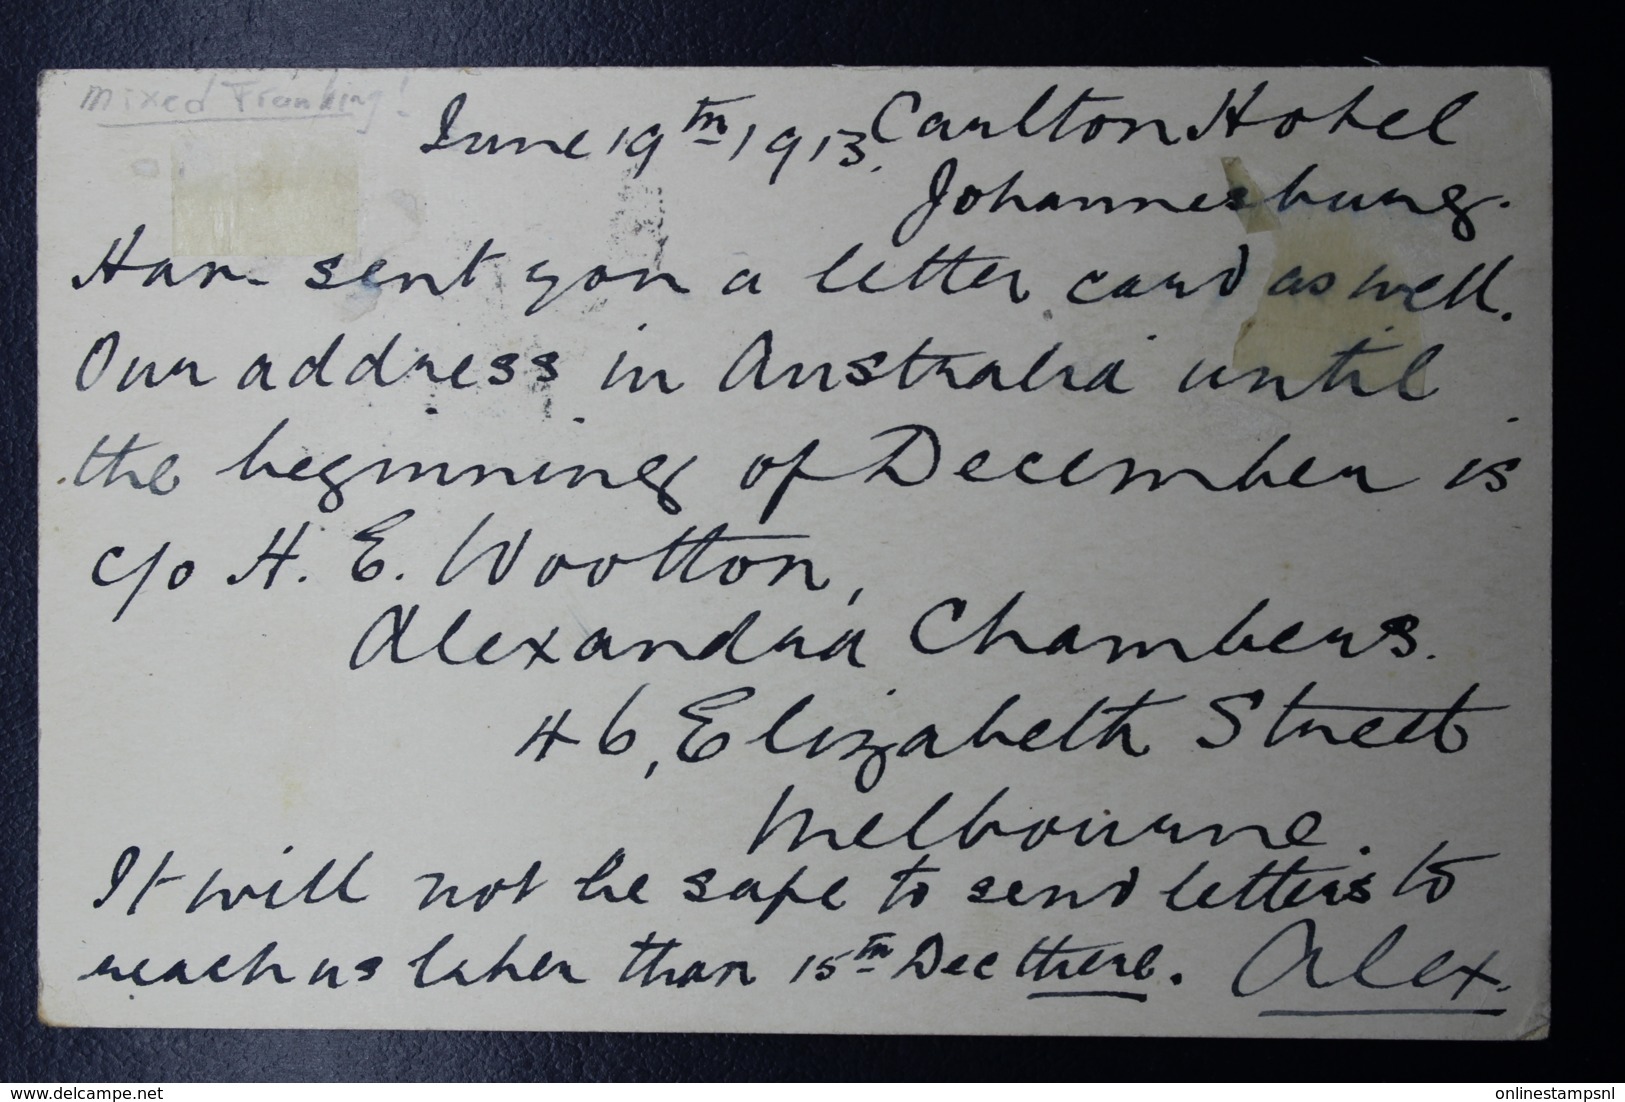 mixed Franking!
June 19th 1913. Carlton Hotel
Johannesburg.
Have sent you a letter card as well.
Our address in Australia until
the beginning of December is
c/o H. E. Wootton,
Alexandra Chambers.
46, Elizabeth Street
Melbourne.
It will not be safe to send letters to
reach us later than 15th Dec there. Alex.
delcampe.net
onlinestampsnl